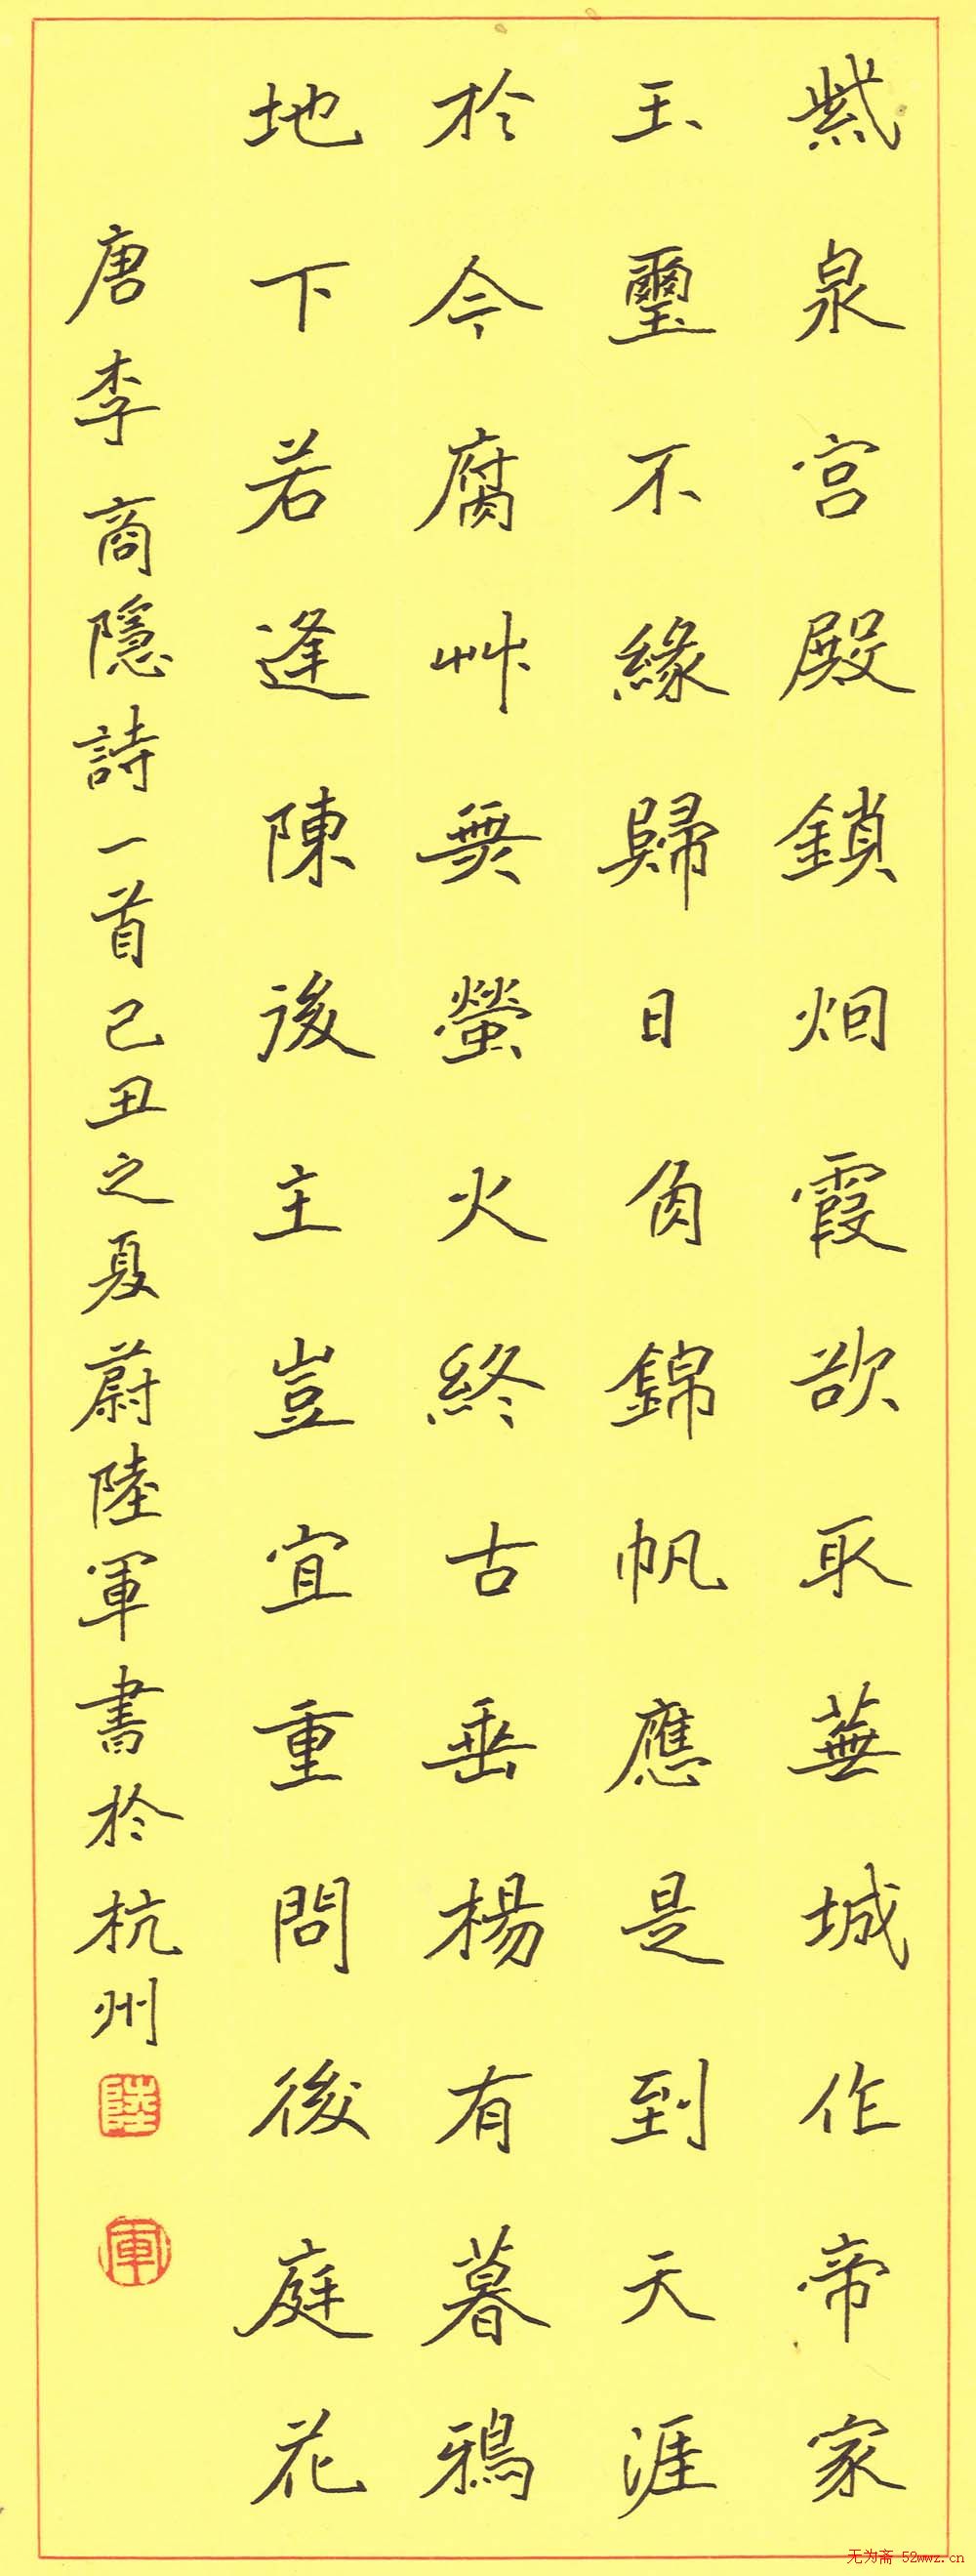 紫泉宫殿鎖烟霞欲取蕪城作帝家
玉璽不緣歸日角錦帆應是到天涯
於今腐艸無螢火終古垂楊有暮鴉
地下若逢陳後主豈宜重問後庭花
唐李商隱詩一首己丑之夏蔚陸軍書於杭州
陸
軍
无为斋 52wwz.cn